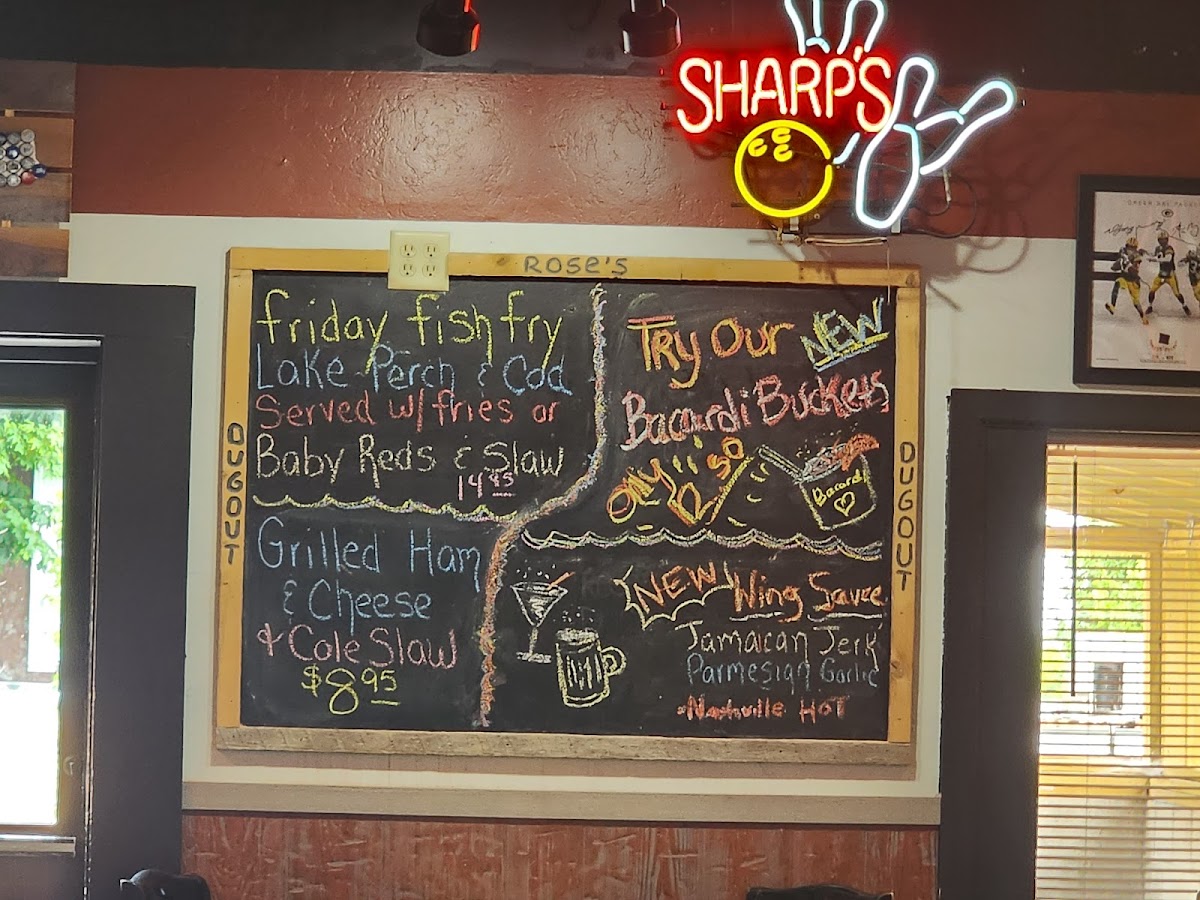 SHARP'S
ROSE'S
DUGOUT
DUGOUT
friday fish fry
Lake Perch & Cod
Served w/fries or
Baby Reds & Slaw
14.95
Grilled Ham
& Cheese
& Cole Slaw
$8.95
TRY OUR NEW
Bacardi Buckets
Only
Bacardi
NEW! Wing Sauce
Jamaican Jerk
Parmesian Garlic
Nashville HOT